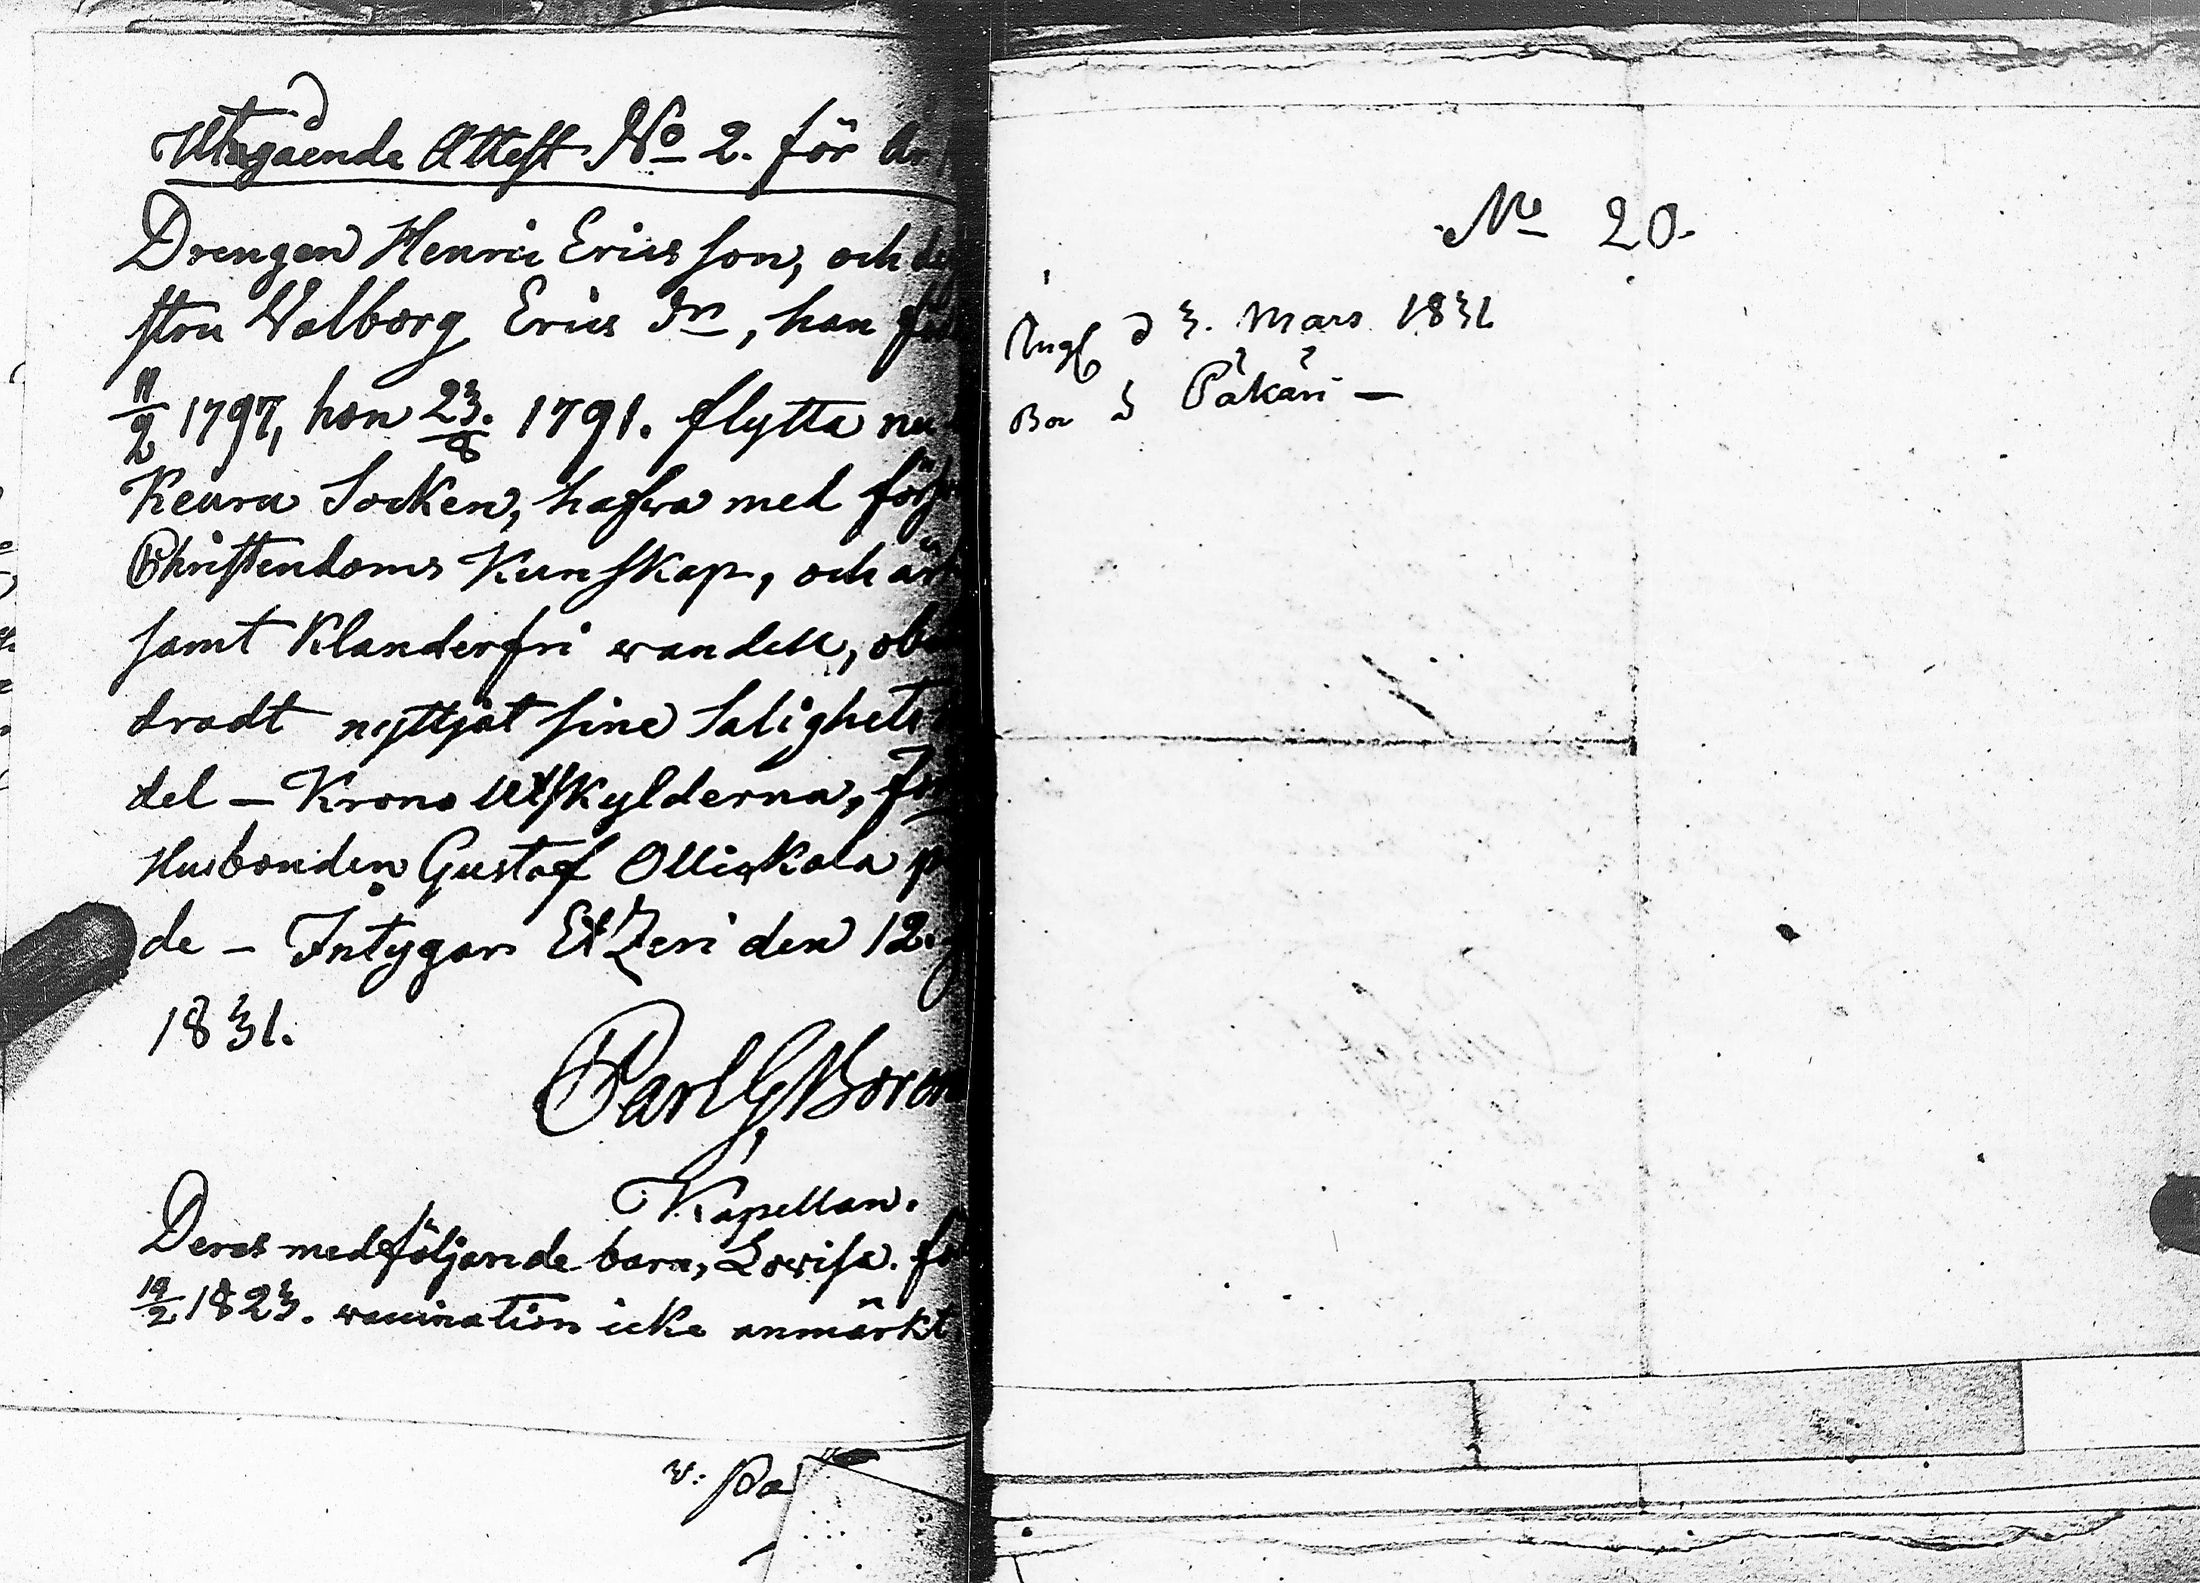 Utgående Attest No 2. för år
Drengen Henric Ericsson, och
stru Walborg Erics dr, han
11/2 1797, hon 23/8. 1791. flytta nu
Keuru Socken, hafwa med
Christendoms Kunskap, och
samt Klanderfri wandell,
dradt nyttjat sine Salighets
del – Krono Utskylderna,
Husbonden Gustaf Olliskala
de – Intygar Etzeri den 12.
1831.
Carl G Boren
Kapellan.
Deras medföljande barn, Lowisa.
19/2 1823. waccination icke anmärkt
No 20.
d 3. Mars 1831
Bor å Påkäri —